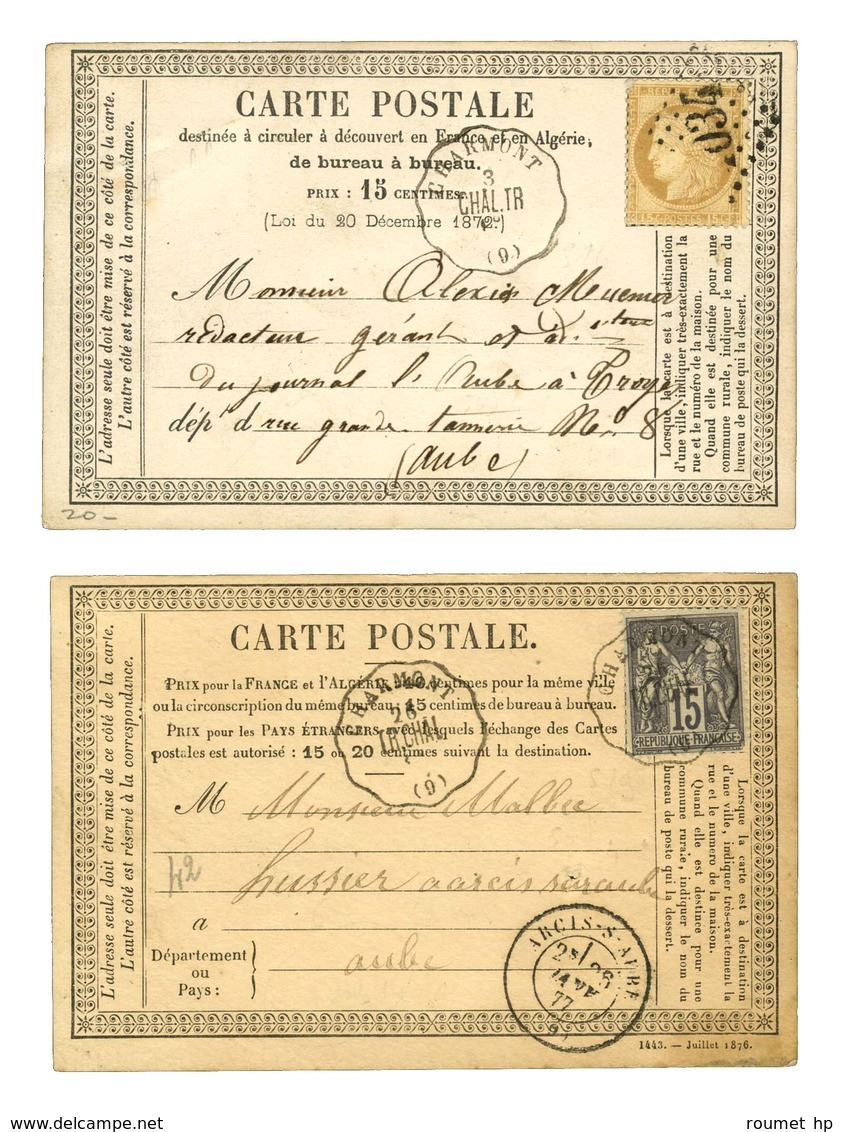 CARTE POSTALE
destinée à circuler à découvert en France et en Algérie,
de bureau à bureau.
PRIX : 15 CENTIMES.
(Loi du 20 Décembre 1872.)
L'adresse seule doit être mise de ce côté de la carte.
L'autre côté est réservé à la correspondance.
CHARMONT
3
CHAL.TR
(9)
REPUB
15 c POSTES 15 c
Monsieur Alexis
rédacteur gérant et
du journal l'Aube à Troyes
dépt d rue grande tannerie No 8
(aube)
Lorsque la carte est à destination
d'une ville, indiquer très-exactement la
rue et le numéro de la maison.
Quand elle est destinée pour une
commune rurale, indiquer le nom du
bureau de poste qui la dessert.
20-
CARTE POSTALE.
PRIX pour la FRANCE et l'ALGÉRIE centimes pour la même ville
ou la circonscription du même bureau, 15 centimes de bureau à bureau.
PRIX pour les PAYS ÉTRANGERS avec lesquels l'échange des Cartes
postales est autorisé : 15 ou 20 centimes suivant la destination.
L'adresse seule doit être mise de ce côté de la carte.
L'autre côté est réservé à la correspondance.
CHARMONT
26
TR.CHAL
(9)
CHARMONT
15
REPUBLIQUE FRANÇAISE
M Monsieur Malbec
hussier a arcis sur aube
42
à
Département
ou
Pays :
aube
ARCIS-S-AUBE
2E/ 26
JANV.
77
(9)
Lorsque la carte est à destination
d'une ville, indiquer très-exactement la
rue et le numéro de la maison.
Quand elle est destinée pour une
commune rurale, indiquer le nom du
bureau de poste qui la dessert.
1443. — Juillet 1876.
www.delcampe.net
roumet hp